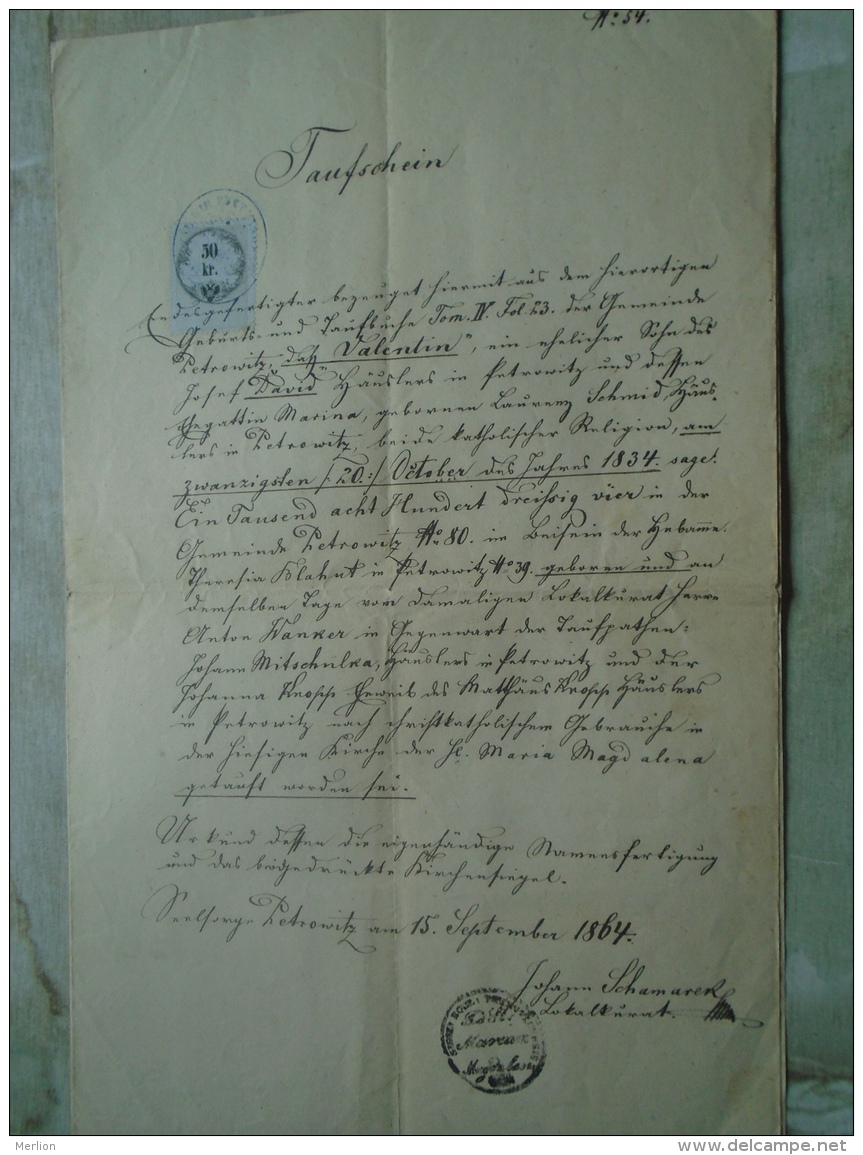 No 54.
Taufschein
50
kr.
Endesgefertigter bezeuget hiermit aus dem hierortigen
Geburts- und Taufbuche Tom. IV. Fol. 23. der Gemeinde
Petrowitz, daß „Valentin", ein ehelicher Sohn des
Josef „David" Häuslers in Petrowitz und dessen
Ehegattin Marina, gebornen Laurenz Schmid, Häus-
lers in Petrowitz, beide katholischer Religion, am
zwanzigsten /:20.:/ October des Jahres 1834. sage:
Ein Tausend acht Hundert dreissig vier in der
Gemeinde Petrowitz No 80. im Beisein der Hebamme
Theresia Klahut in Petrowitz No 39. geboren und an
demselben Tage vom damaligen Lokalkurat Herrn
Anton Wanker in Gegenwart der Taufpathen:
Johann Mitschulka, Häuslers in Petrowitz und der
Johanna Knopp Eheweib des Matthäus Knopp Häuslers
in Petrowitz nach christkatholischem Gebrauche in
der hiesigen Kirche der hl. Maria Magdalena
getauft worden sei.
Urkund dessen die eigenhändige Namensfertigung
und das beigedrückte Kirchensiegel.
Seelsorge Petrowitz am 15. September 1864.
Johann Schamarek
Lokalkurat.
Magdalena
Merlion
www.delcampe.net